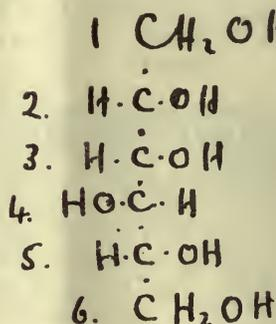 1 CH₂O
2. H·C·OH
3. H·C·OH
4. HO·C·H
5. H·C·OH
6. CH₂OH